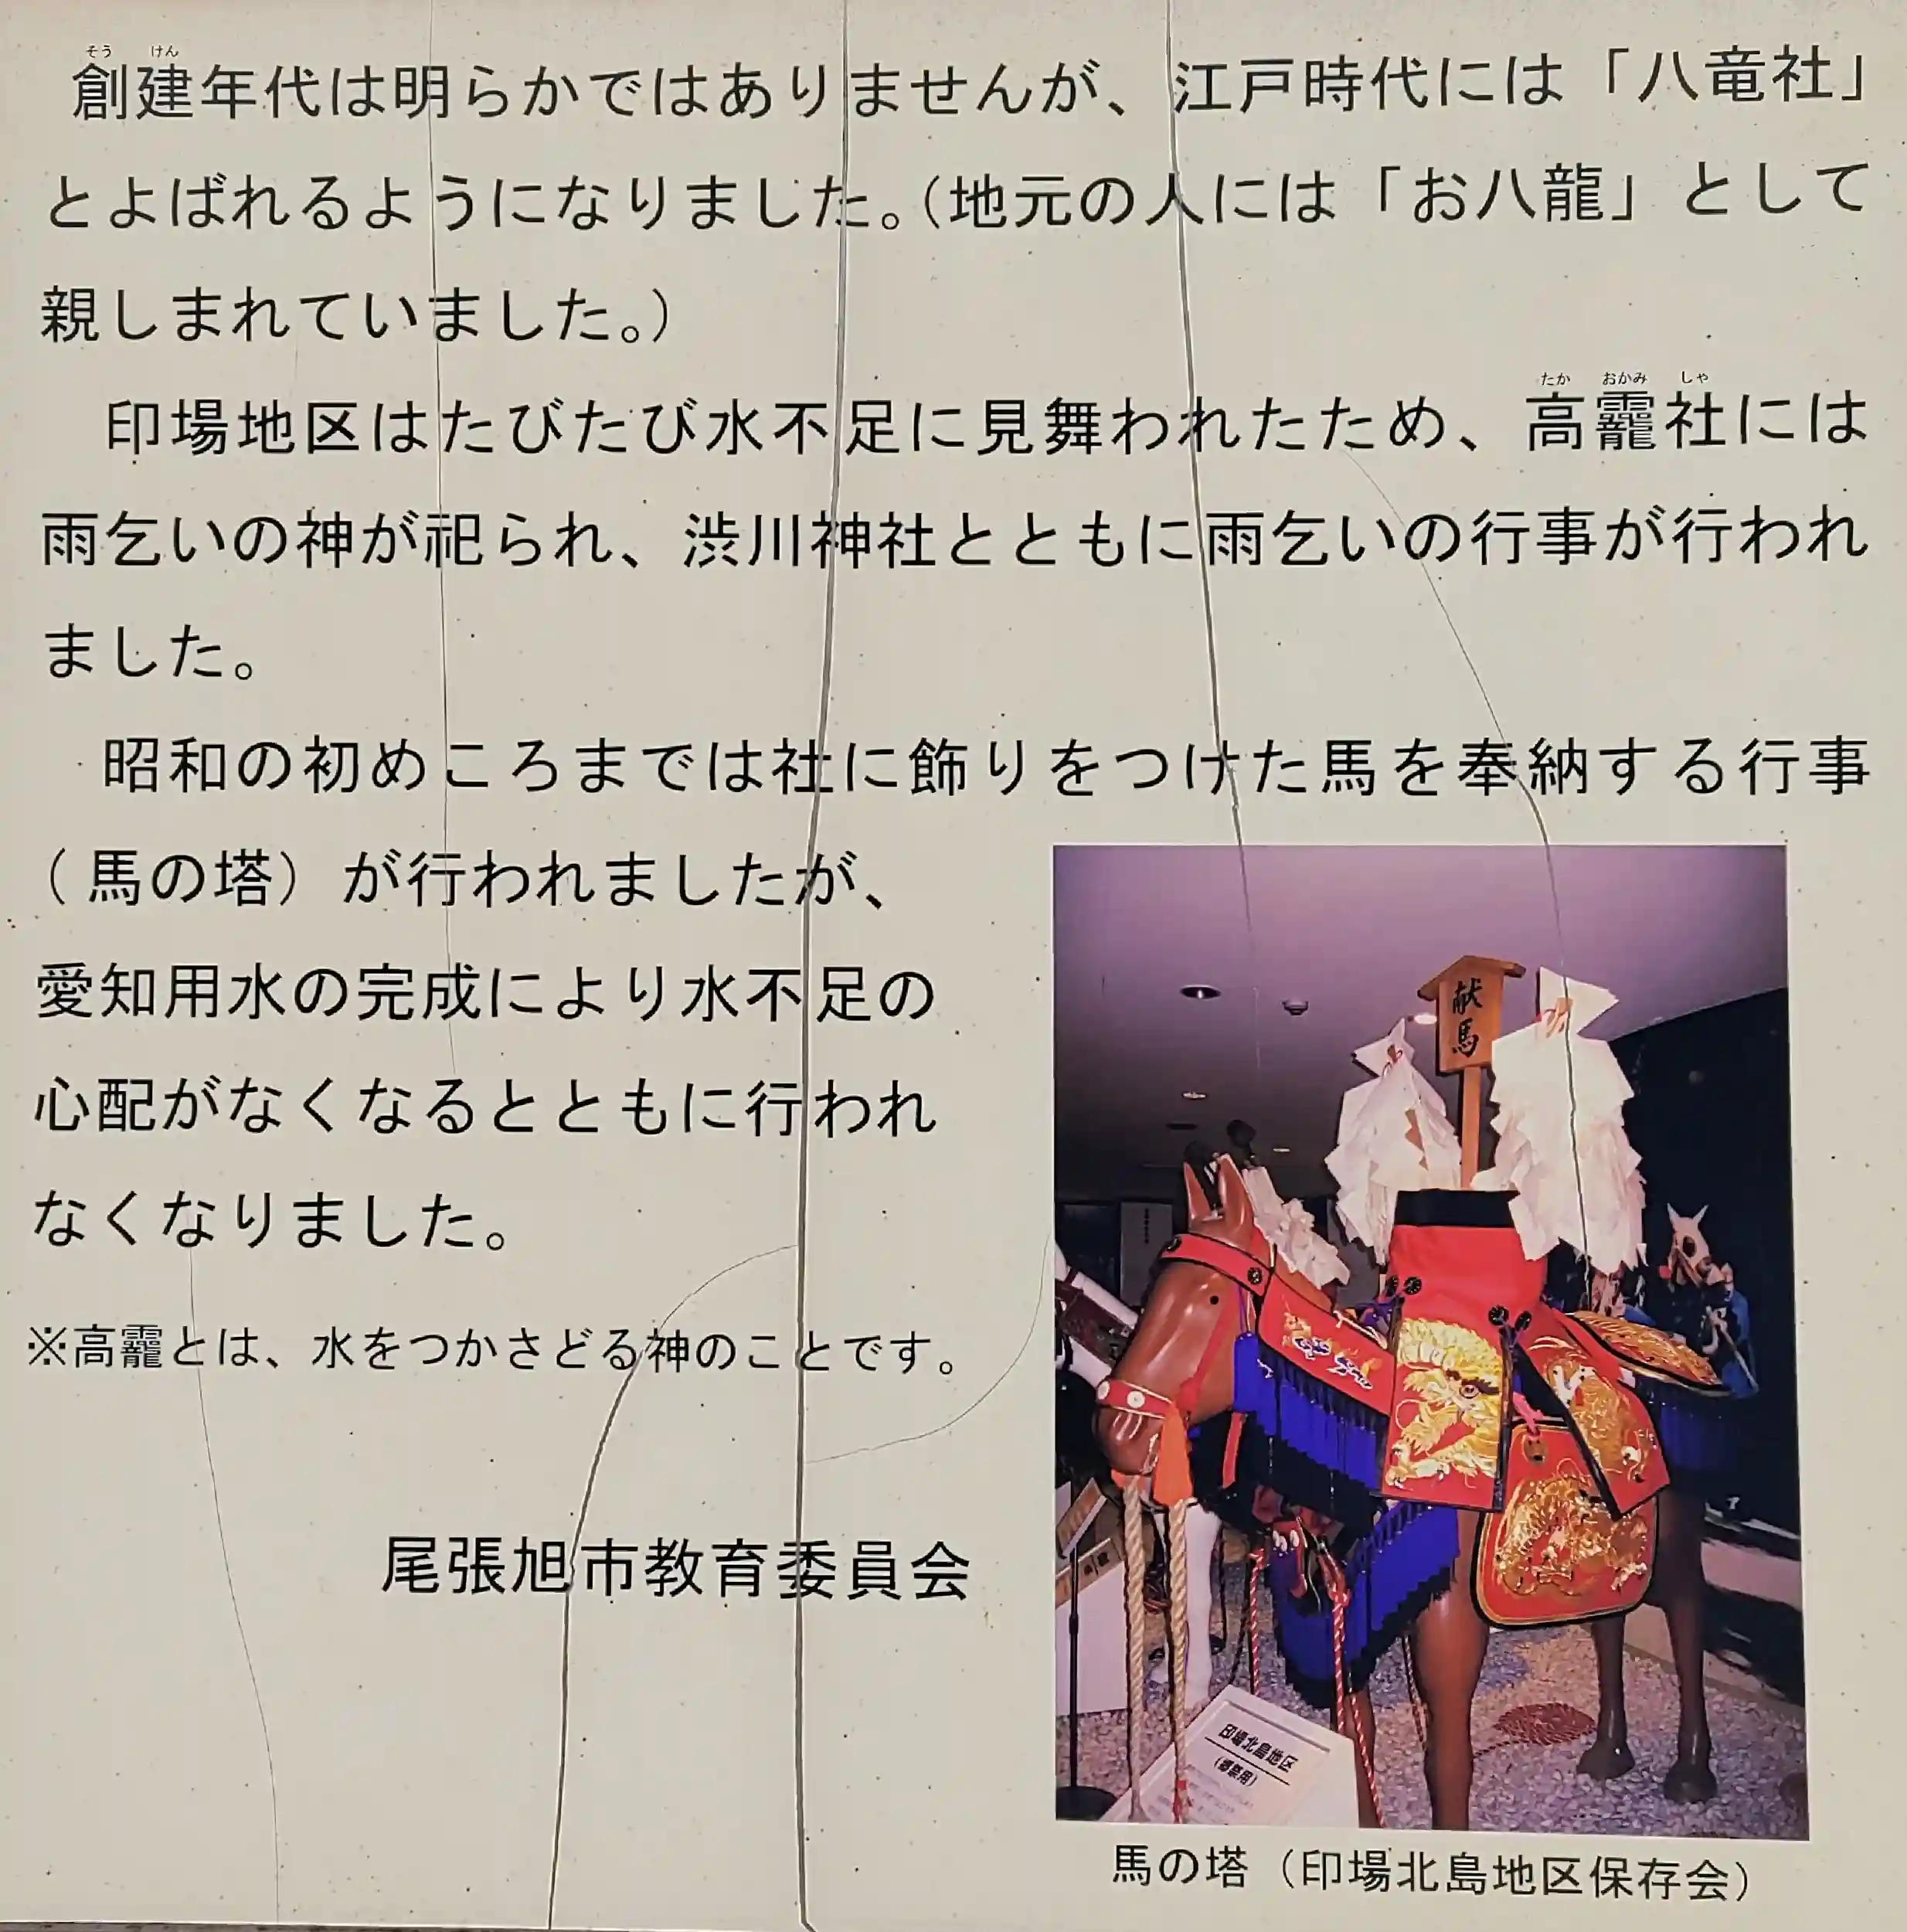 そう けん
創建年代は明らかではありませんが、江戸時代には「八竜社」
とよばれるようになりました。(地元の人には「お八龍」として
親しまれていました。)
たか おかみ しゃ
印場地区はたびたび水不足に見舞われたため、高龗社には
雨乞いの神が祀られ、渋川神社とともに雨乞いの行事が行われ
ました。
昭和の初めころまでは社に飾りをつけた馬を奉納する行事
(馬の塔)が行われましたが、
愛知用水の完成により水不足の
心配がなくなるとともに行われ
なくなりました。
※高龗とは、水をつかさどる神のことです。
尾張旭市教育委員会
献馬
印場北島地区
馬の塔(印場北島地区保存会)